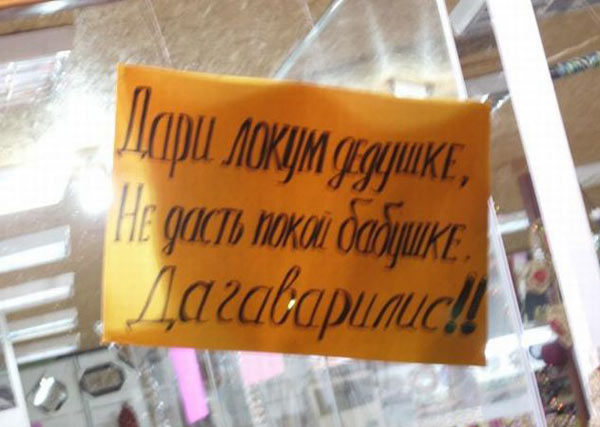 Дари локум дедушке,
Не дасть покой бабушке.
Дагаварилис!!